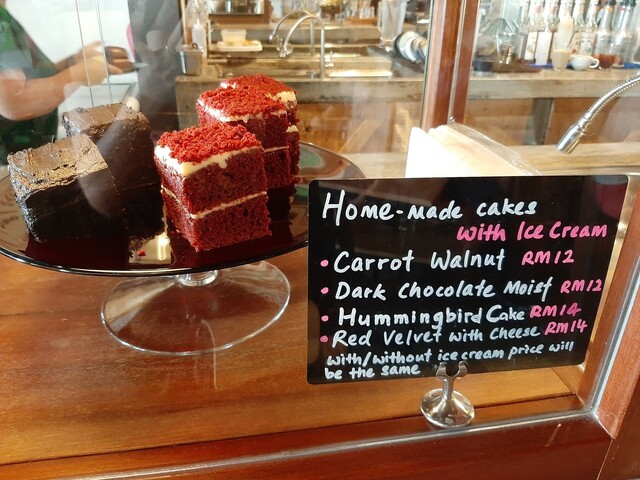 Home-made cakes
with Ice Cream
• Carrot Walnut RM12
• Dark Chocolate Moist RM12
• Hummingbird Cake RM14
• Red Velvet with Cheese RM14
with/without ice cream price will
be the same